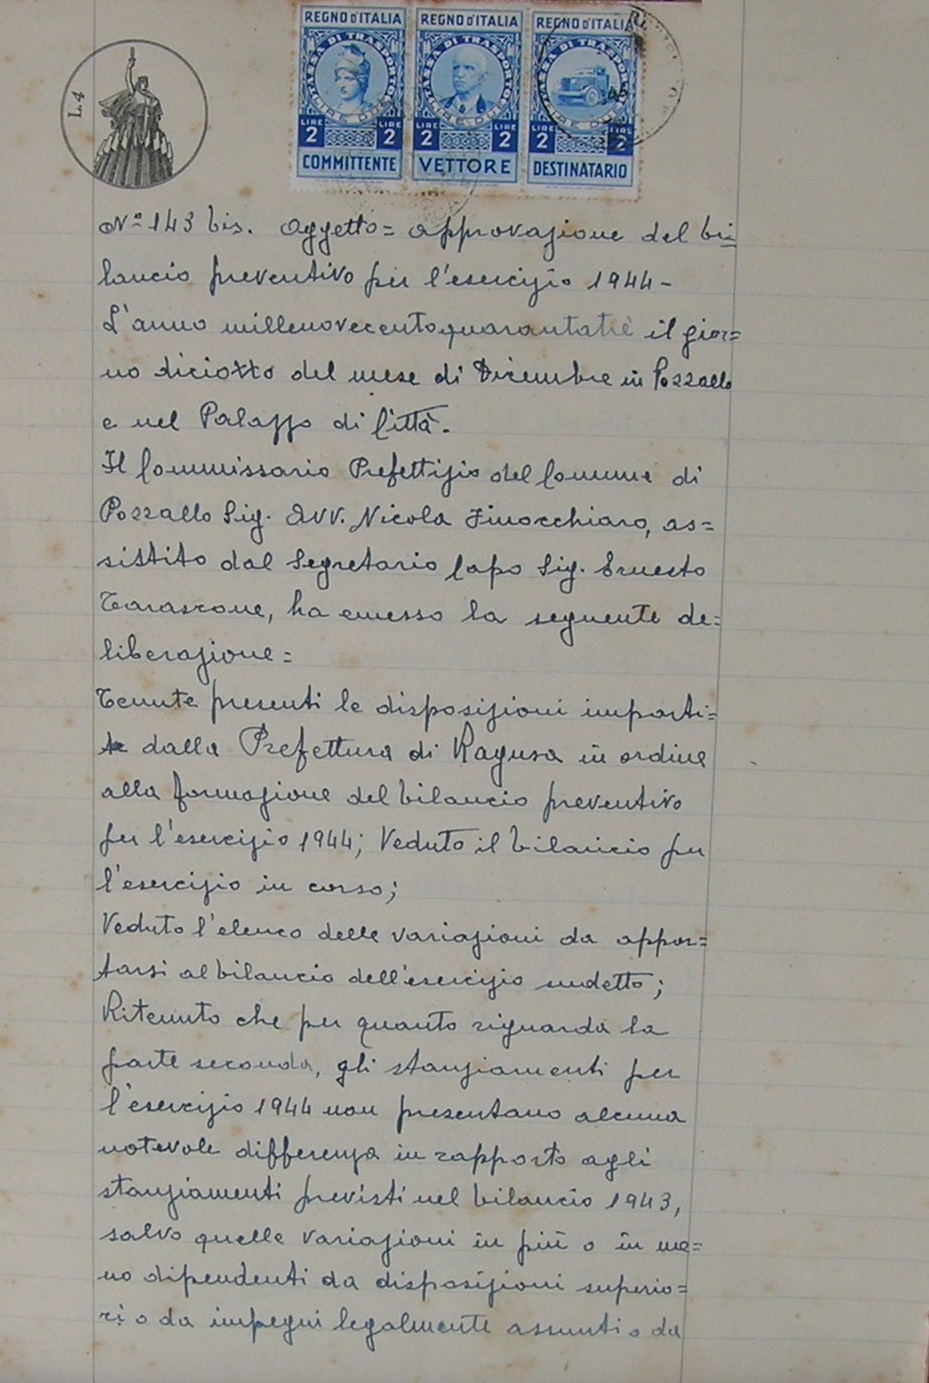 L. 4
REGNO D'ITALIA REGNO D'ITALIA REGNO D'ITALIA
TASSA DI TRASPORTO TASSA DI TRASPORTO TASSA DI TRASPORTO
LIRE DUE LIRE DUE LIRE DUE
LIRE 2 LIRE 2 LIRE 2 LIRE 2 LIRE 2 LIRE 2
COMMITTENTE VETTORE DESTINATARIO
N° 143 bis. Oggetto = approvazione del bi=
lancio preventivo per l'esercizio 1944 -
L'anno millenovecentoquarantatrè il gior=
no diciotto del mese di Dicembre in Pozzallo
e nel Palazzo di Città.
Il Commissario Prefettizio del Comune di
Pozzallo Sig. Avv. Nicola Finocchiaro, as=
sistito dal Segretario Capo Sig. Ernesto
Tarascone, ha emesso la seguente de=
liberazione =
Tenute presenti le disposizioni imparti=
te dalla Prefettura di Ragusa in ordine
alla formazione del bilancio preventivo
per l'esercizio 1944; Veduto il bilancio per
l'esercizio in corso;
Veduto l'elenco delle variazioni da appor=
tarsi al bilancio dell'esercizio sudetto;
Ritenuto che per quanto riguarda la
parte seconda, gli stanziamenti per
l'esercizio 1944 non presentano alcuna
notevole differenza in rapporto agli
stanziamenti previsti nel bilancio 1943,
salvo quelle variazioni in più o in me=
no dipendenti da disposizioni superio=
ri o da impegni legalmente assunti o da